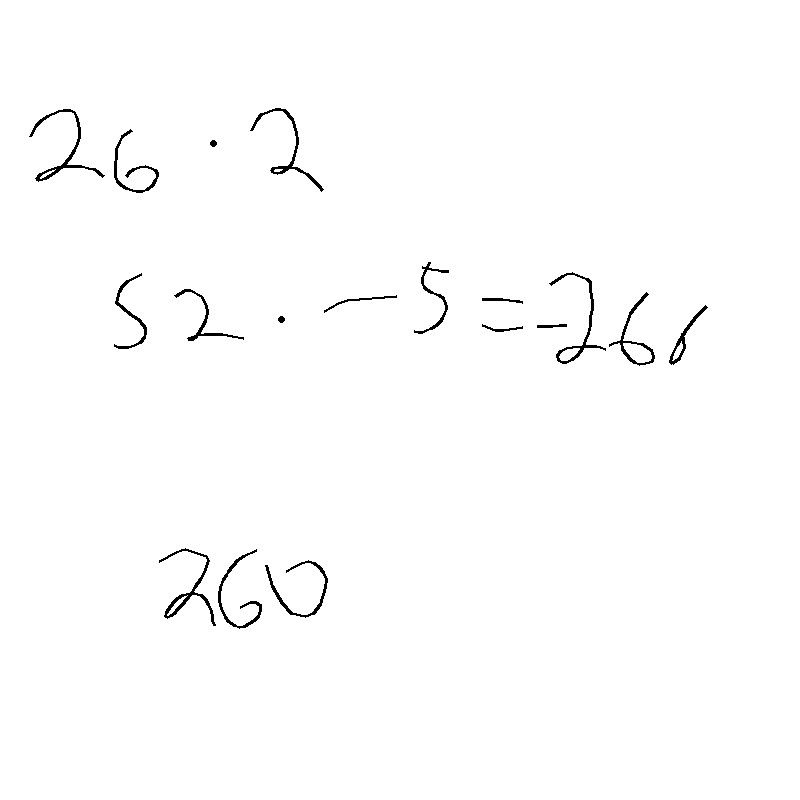 26 · 2
52 · -5 = -26
260